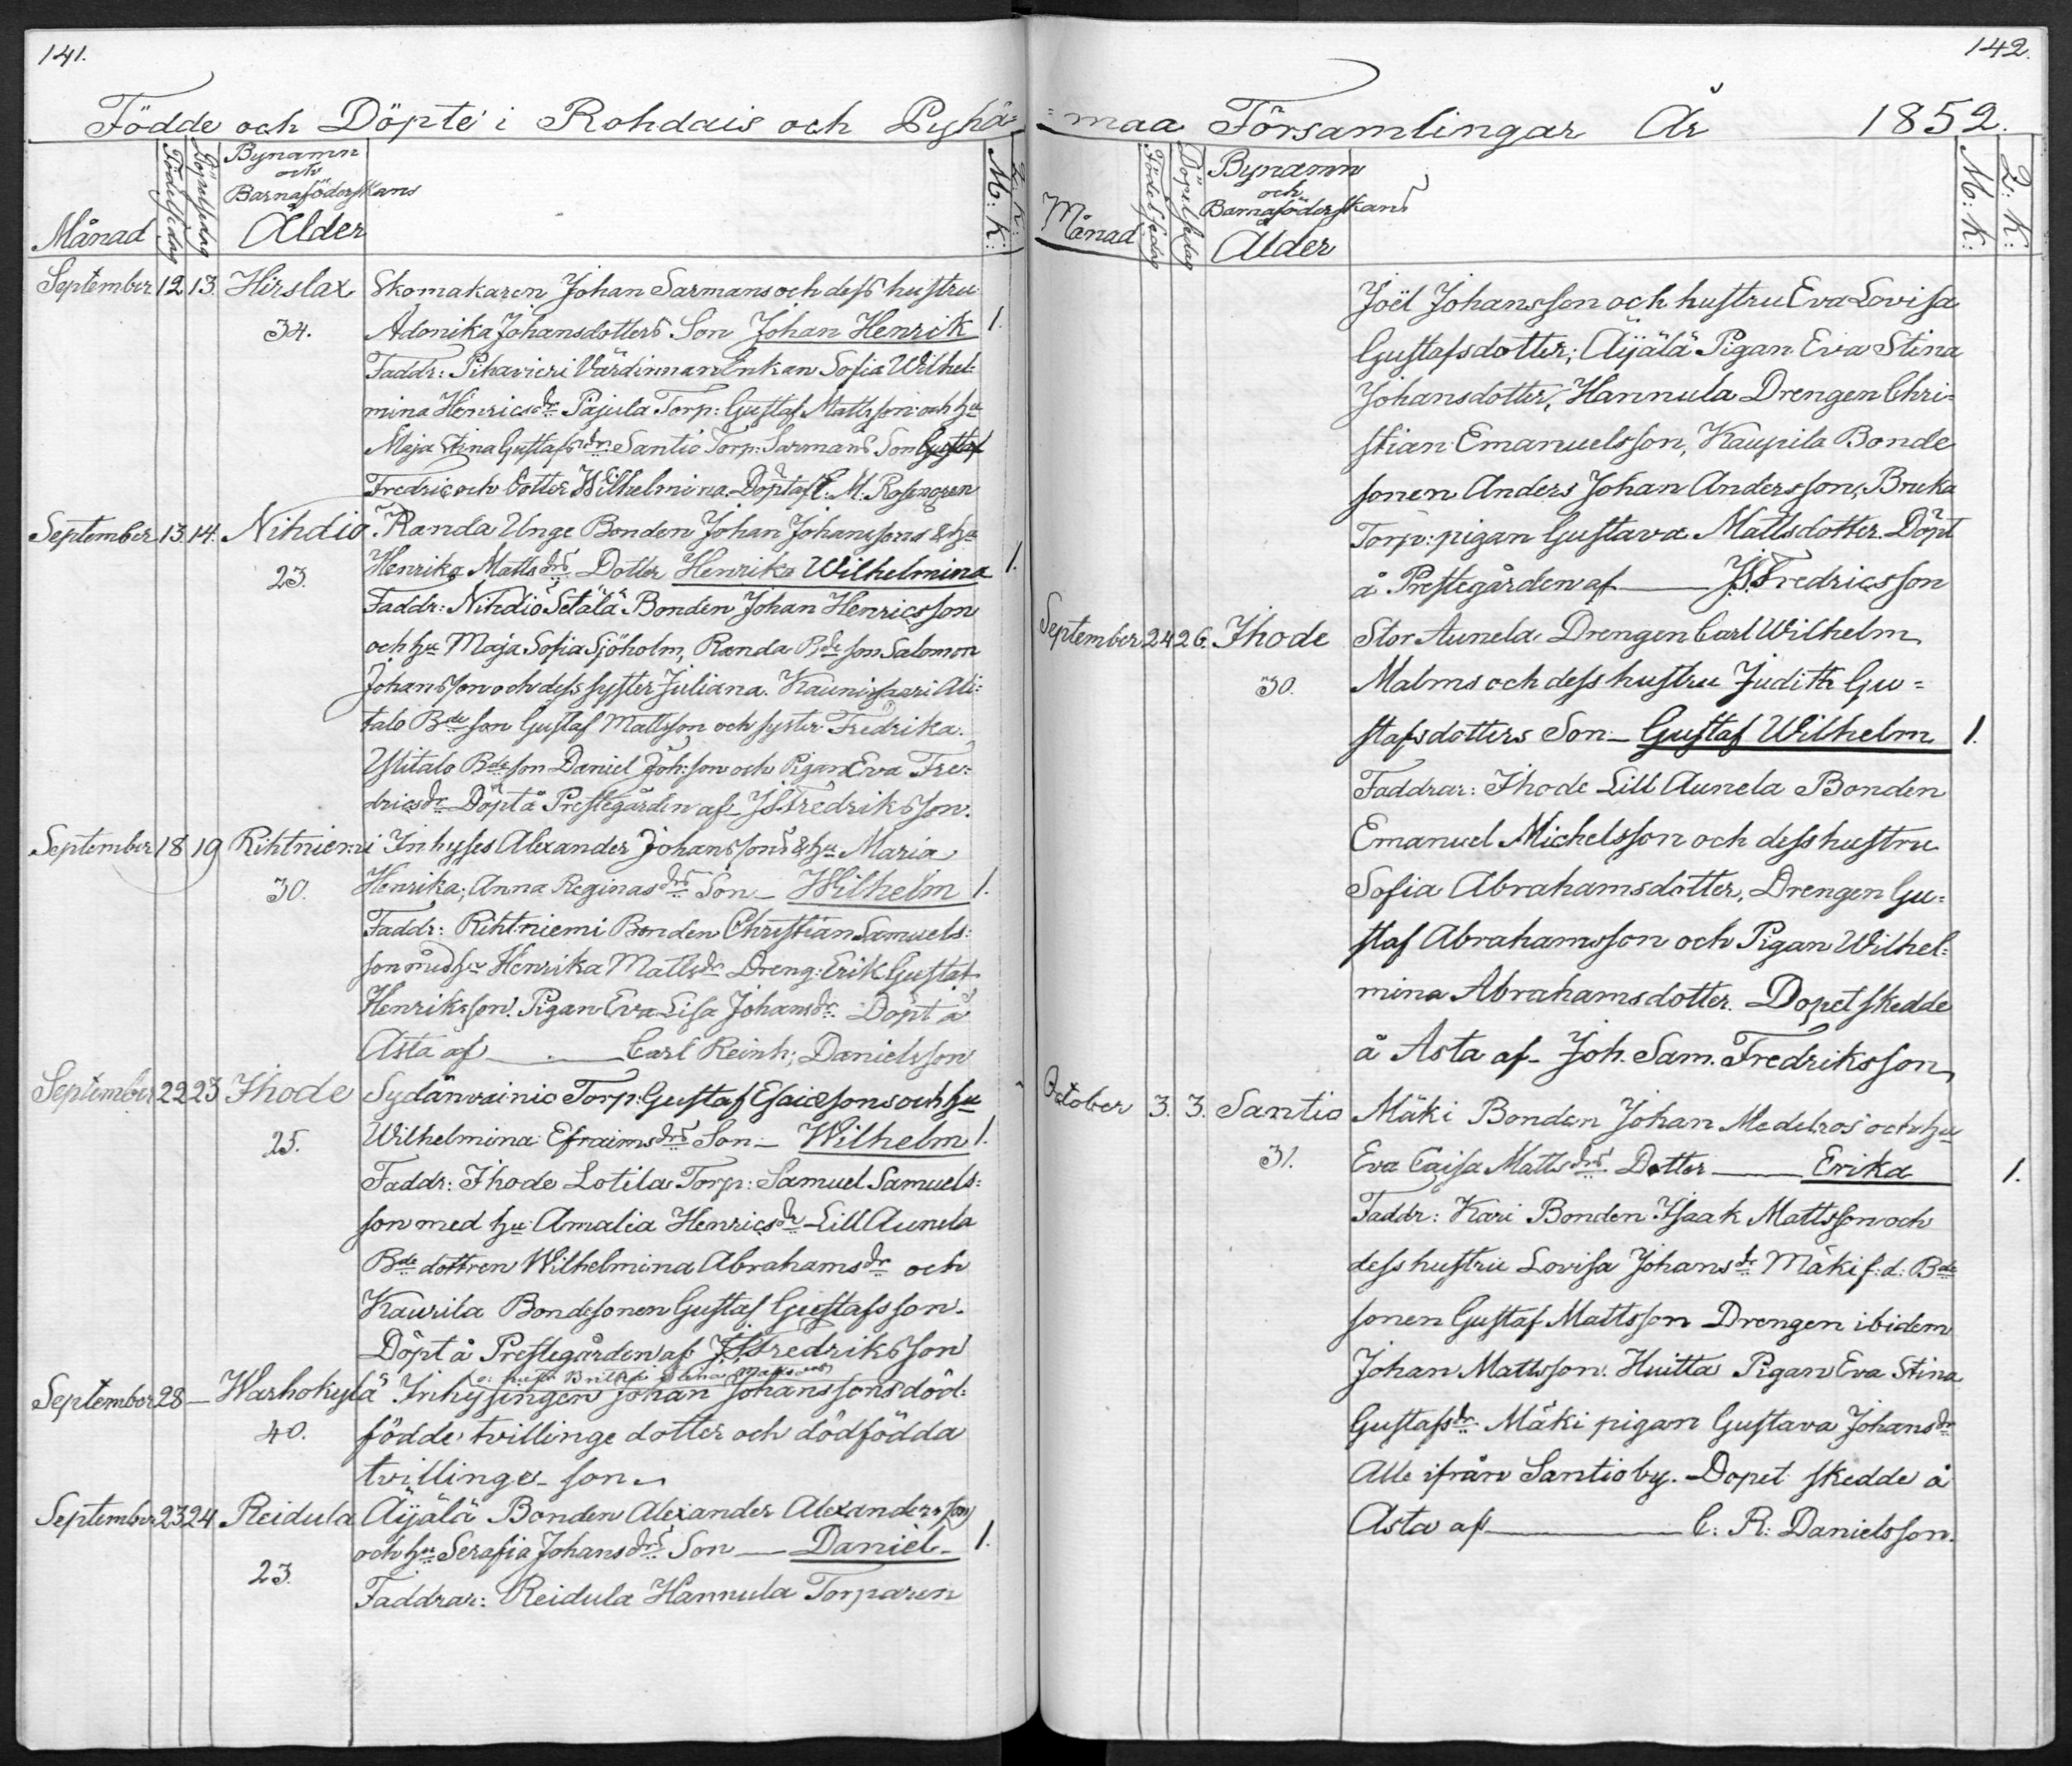 141.
Födde och Döpte i Rohdais och Pyhä=
Månad Födelsedag Döpelsedag Bynamn och Barnaföderskans Ålder M: K: Q: K:
September 12 13. Hirslax Skomakaren Johan Sarmans och dess hustru
34. Adonika Johansdotters Son Johan Henrik 1.
Faddr: Pihavieri Värdinnan Enkan Sofia Wilhel=
mina Henricsdr Pajula Torp: Gustaf Mattsson och hu
Maja Stina Gustafsdr Santio Torp: Sarmans Son Gustaf
Fredric och Dotter Wilhelmina. Döpt af C. M. Rosengren
September 13. 14. Nihdio Randa Unge Bonden Johan Johanssons & hu
23. Henrika Mattsdrs Dotter Henrika Wilhelmina 1.
Faddr: Nihdiö Setälä Bonden Johan Henricsson
och hu Maja Sofia Sjöholm, Randa Bde son Salomon
Johansson och dess syster Juliana. Kaunissaari Ali=
talo Bde son Gustaf Mattsson och syster Fredrika.
Ylitalo Bde son Daniel Joh:son och Pigan Eva Fre=
dricsdr Döpt å Prestegården af JSFredriksson.
September 18 19 Rihtniemi Inhyses Alexander Johanssons & hu Maria
30. Henrika, Anna Reginasdrs Son – Wilhelm 1.
Faddr: Rihtniemi Bonden Christian Samuels=
son med hu Henrika Mattsdr Dreng: Erik Gustaf
Henriksson. Pigan Eva Lisa Johansdr Döpt å
Asta af — Carl Reinh; Danielsson
September 22 23 Ihode Sydänvainio Torp: Gustaf Esaiessons och hu
25. Wilhelmina Efraimsdrs Son – Wilhelm 1.
Faddr: Ihode Lotila Torp: Samuel Samuels=
son med hu Amalia Henricsdr Lill Aunela
Bde dottren Wilhelmina Abrahamsdr och
Kaurila Bondesonen Gustaf Gustafsson.
Döpt å Prestegården af JSFredriksson
Mattsdrs
September 28 – Warhokylä Inhysingen Johan Johanssons död=
40. födde tvillinge dotter och dödfödda
tvillinge son.
September 23 24 Reidula Äijälä Bonden Alexander Alexandersson
och hu Serafia Johansdrs Son — Daniel 1.
23. Faddrar: Reidula Hannula Torparen
142.
=maa Församlingar År 1852.
Månad Födelsedag Döpelsedag Bynamn och Barnaföderskans Ålder M: K: Q: K:
Joël Johansson och hustru Eva Lovisa
Gustafsdotter; Äijälä Pigan Eva Stina
Johansdotter, Hannula Drengen Chri=
stian Emanuelsson, Kaupila Bonde
sonen Anders Johan Andersson, Bruka
Torp: pigan Gustava Mattsdotter. Döpt
å Prestegården af — JSFredricsson
September 24 26. Ihode Stor Aunela Drengen Carl Wilhelm
30. Malms och dess hustru Judith Gu=
stafsdotters Son – Gustaf Wilhelm 1.
Faddrar: Ihode Lill Aunela Bonden
Emanuel Michelsson och dess hustru
Sofia Abrahamsdotter, Drengen Gu=
staf Abrahamsson och Pigan Wilhel=
mina Abrahamsdotter. Dopet skedde
å Asta af – Joh. Sam. Fredriksson
October 3. 3. Santio Mäki Bonden Johan Medelros och hu
31. Eva Caisa Mattsdrs Dotter — Erika 1.
Faddr: Kari Bonden Isaak Mattsson och
dess hustru Lovisa Johansdr Mäki f. d. Bde
sonen Gustaf Mattsson Drengen ibidem
Johan Mattsson. Huitta Pigan Eva Stina
Gustafsdr Mäki pigan Gustava Johansdr
Alle ifrån Santio by. Dopet skedde å
Asta af — C: R: Danielsson.